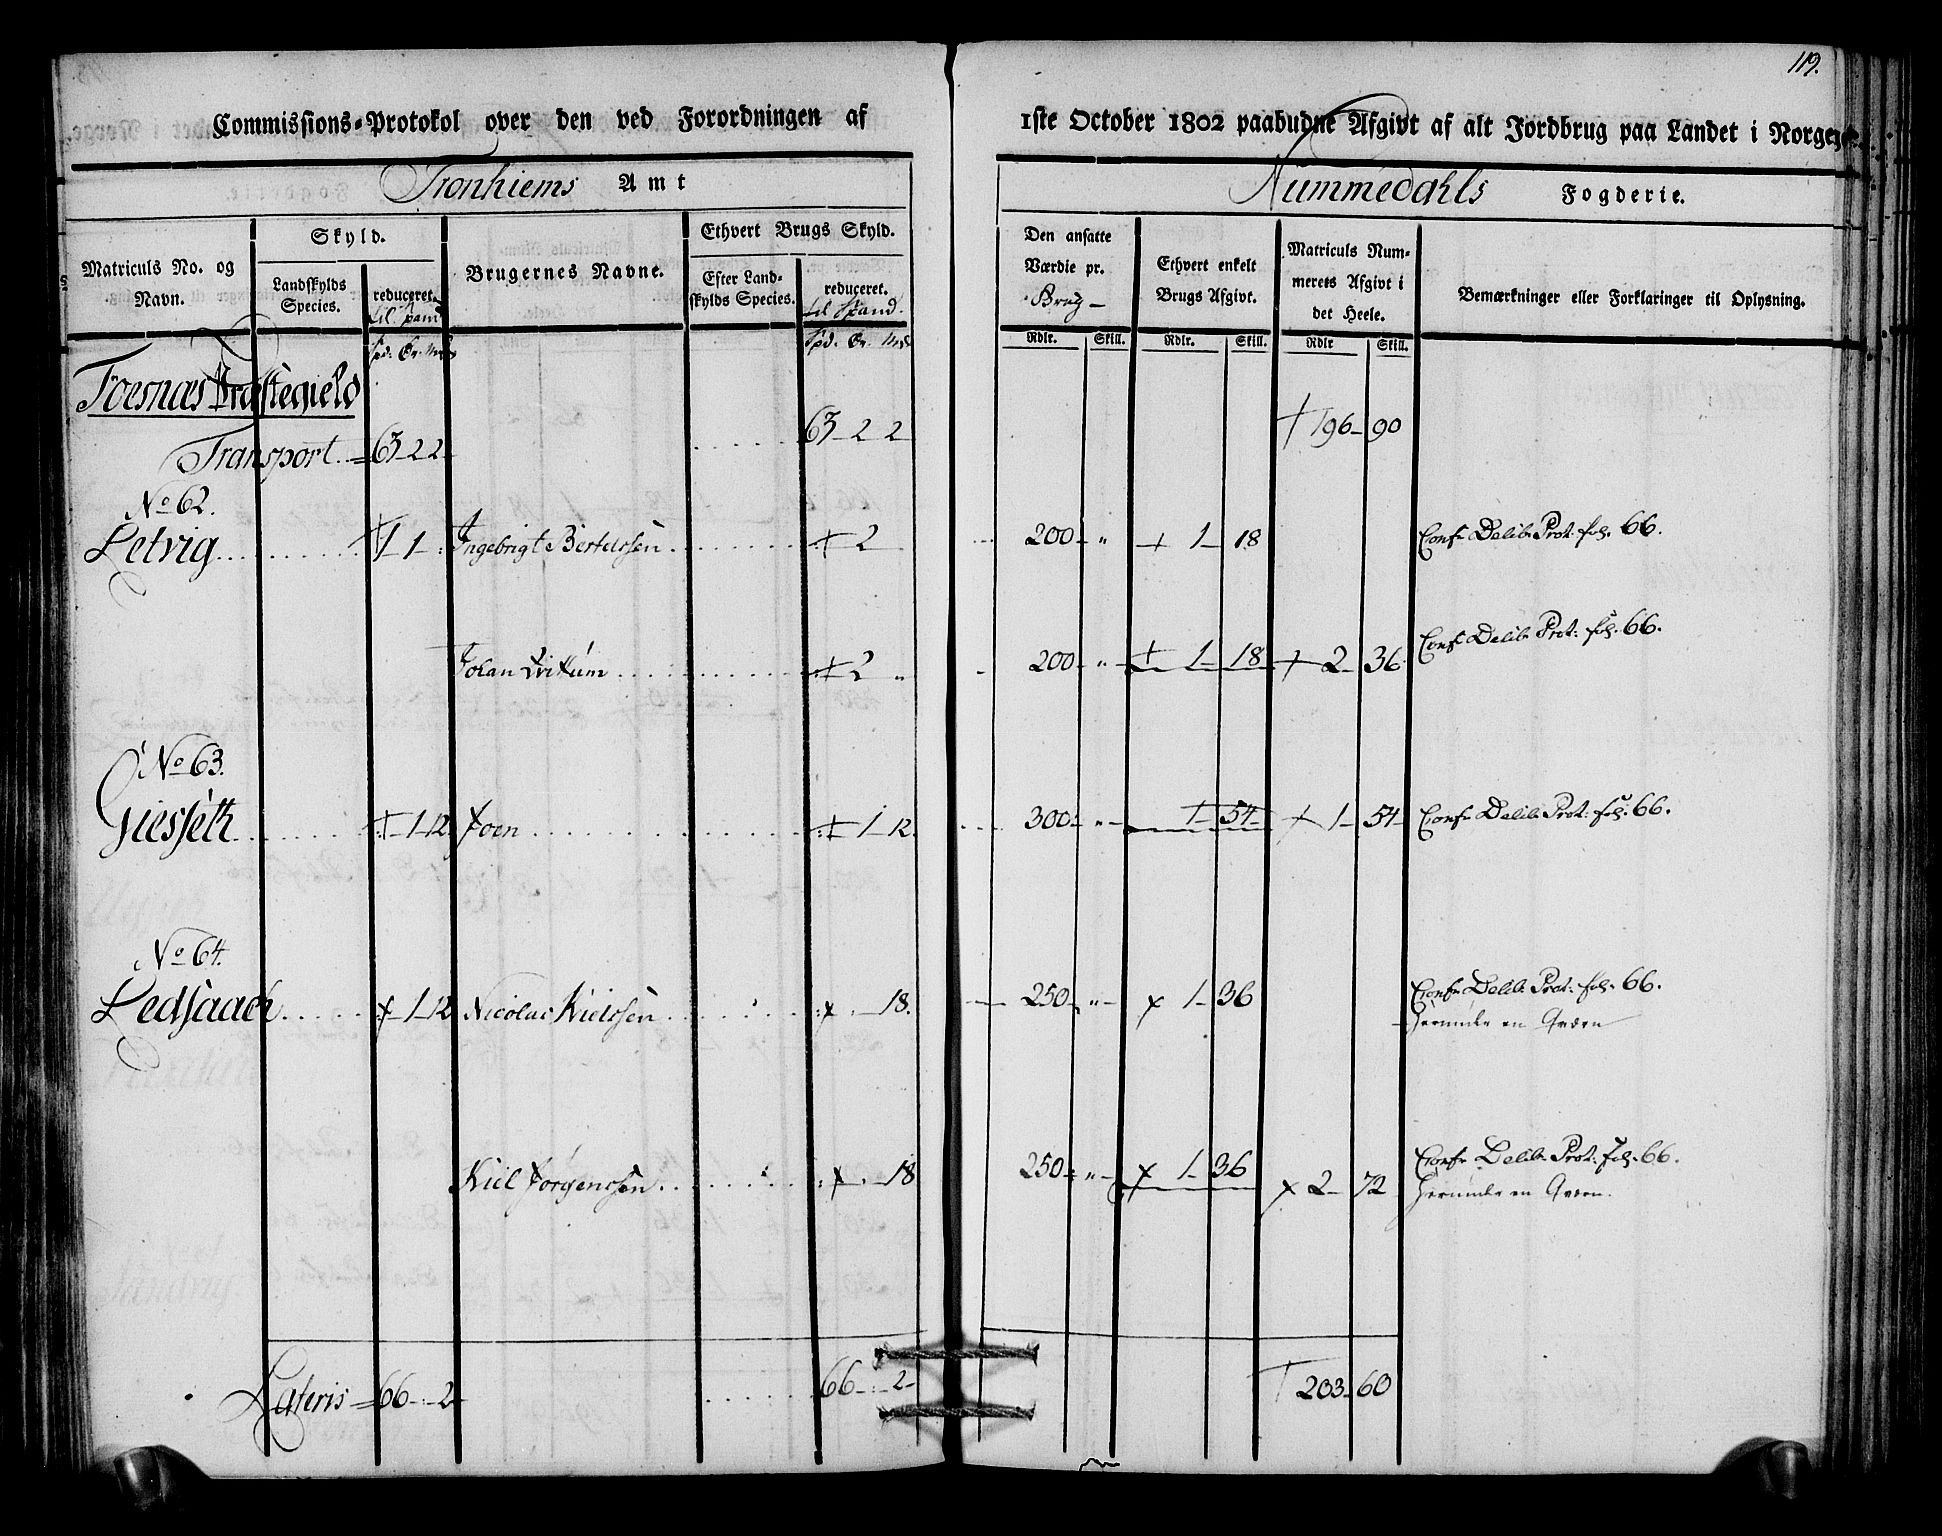 119.
Commissions-Protokol over den ved Forordningen af 1ste October 1802 paabudne Afgivt af alt Jordbrug paa Landet i Norge
Tronhiems Amt
Nummedahls Fogderie.
Matriculs No. og Navn.
Skyld.
Landskylds Species.
reduceret. til Spand
Brugernes Navne.
Ethvert Brugs Skyld.
Efter Landskylds Species.
reduceret. til Spand.
Den ansatte Værdie pr. Brug
Ethvert enkelt Brugs Afgivt.
Matriculs Nummerets Afgivt i det Heele.
Bemærkninger eller Forklaringer til Oplysning.
Spd. Ør. Mrk
Spd. Ør. Mrk
Rdlr. Skill. Rdlr. Skill. Rdlr Skill.
Foesnæs Præstegield
Transport 63 2 2 63 2 2 196 90
No 62.
Letvig 1 1 Ingebrigt Bertelssen 2 200 " 1 18 Conf. Delib. Prot. fol. 66.
Johan 2 " 200 " 1 18 2 36 Conf. Delib. Prot: fol. 66.
No 63.
Giesseth 1 12 Joen 1 12 300 " 1 54 1 54 Conf. Delib. Prot: fol. 66.
No 64.
Ledsaach 1 12 Nicolas Kielssen 18. 250 " 1 36 Conf. Delib. Prot: fol. 66.
Herunder en Qværn
Kiel Jørgenssen 18 250 " 1 36 2 72 Conf. Delib. Prot: Fol. 66.
Herunder en Qværn.
Lateris 66 : 2 66 : 2 203 60